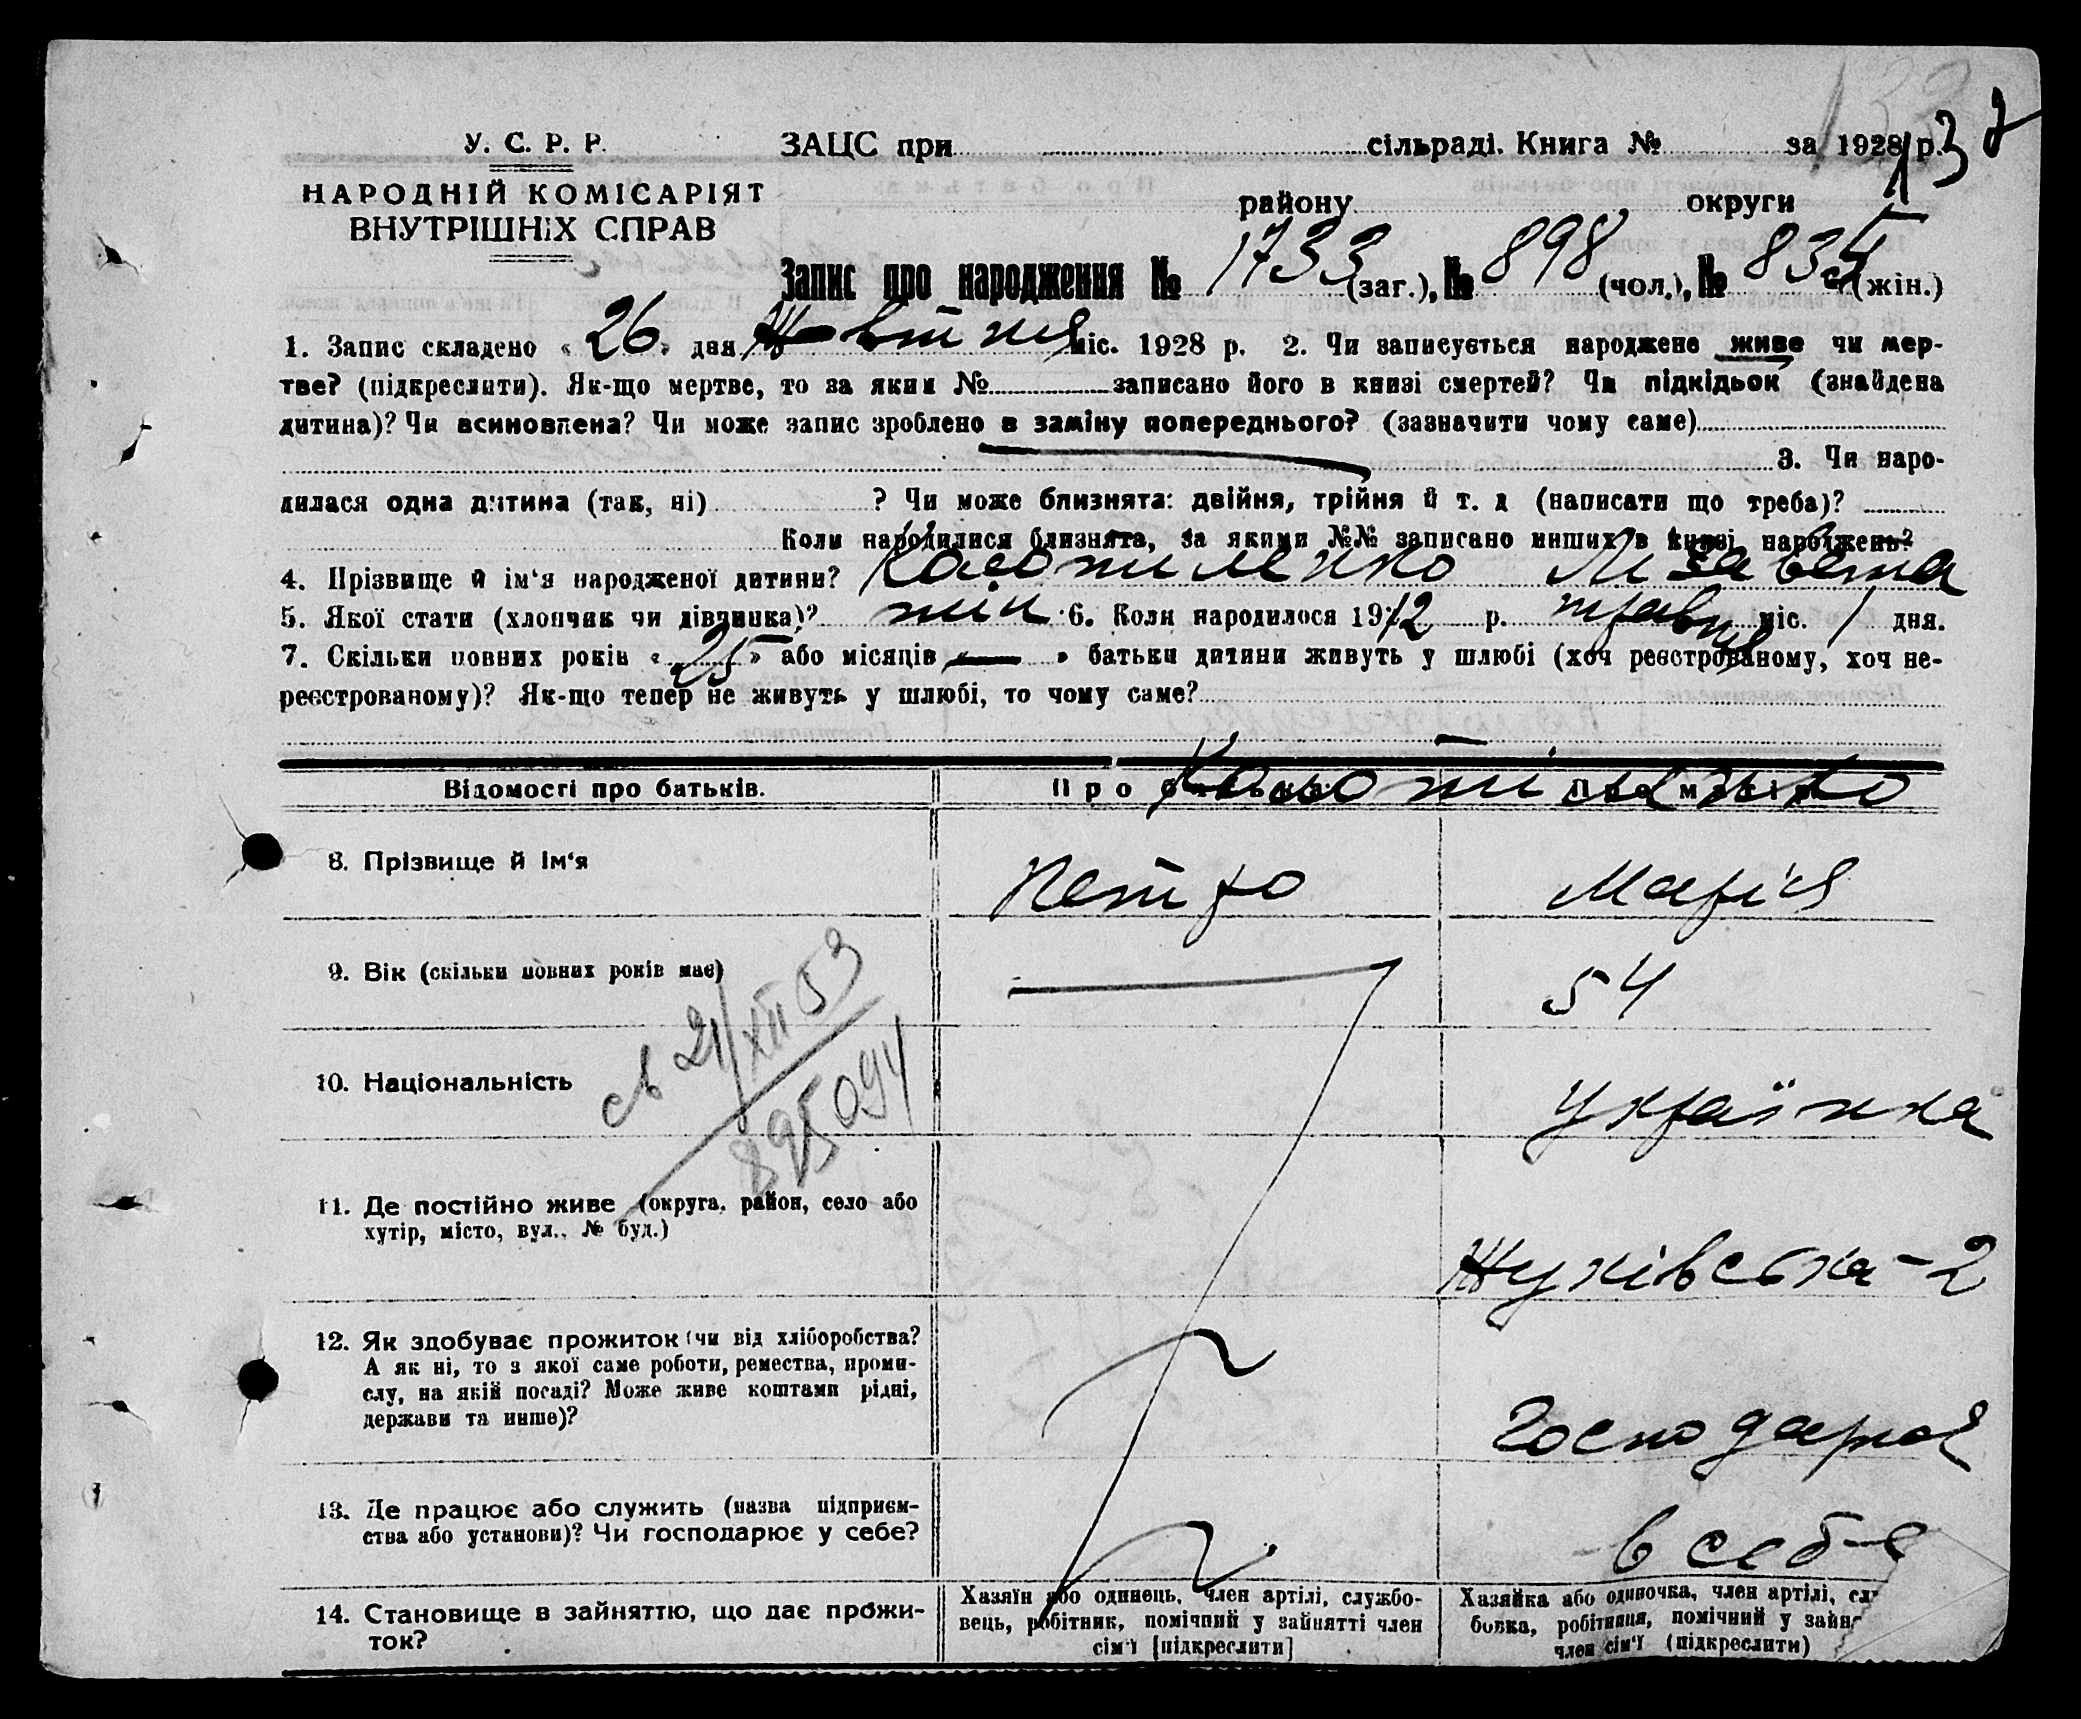 132
У. С. Р. Р. ЗАЦС при сільраді. Книга № за 1928 р.
НАРОДНІЙ КОМІСАРІЯТ
ВНУТРІШНІХ СПРАВ
району округи
Запис про народження № 1733 (заг.), № 898 (чол.), № 835 (жін.)
1. Запис складено « 26 » дня Жовтня міс. 1928 р. 2. Чи записується народжене живе чи мер-
тве? (підкреслити). Як-що мертве, то за яким № записано його в книзі смертей? Чи підкідьок (знайдена
дитина)? Чи всиновлена? Чи може запис зроблено в заміну попереднього? (зазначити чому саме)
3. Чи наро-
дилася одна дитина (так, ні) ? Чи може близнята: двійня, трійня й т. д (написати що треба)?
Коли народилися близнята, за якими №№ записано инших в книзі народжень?
4. Прізвище й ім'я народженої дитини? Колотиленко Лизавета
5. Якої стати (хлопчик чи дівчинка)? жін 6. Коли народилося 1912 р. травня міс. 1 дня.
7. Скільки повних років « 25 » або місяців « — » батьки дитини живуть у шлюбі (хоч реєстрованому, хоч не-
реєстрованому)? Як-що тепер не живуть у шлюбі, то чому саме?
Відомості про батьків. Про батька Про матір
8. Прізвище й ім'я Петро Марія
9. Вік (скільки повних років має) 54
св 21/XII 53
895094
10. Національність Українка
11. Де постійно живе (округа, район, село або
хутір, місто, вул., № буд.) Жуківська - 2
12. Як здобуває прожиток (чи від хліборобства?
А як ні, то з якої саме роботи, ремества, проми-
слу, на якій посаді? Може живе коштами рідні,
держави та инше)? Господарка
13. Де працює або служить (назва підприєм-
ства або установи)? Чи господарює у себе? в себе
14. Становище в зайняттю, що дає прожи-
ток?
Хазяїн або одинець, член артілі, службо-
вець, робітник, помічний у зайнятті член
сім'ї [підкреслити]
Хазяйка або одиночка, член артілі, слу
бовка, робітниця, помічний у зайн
член сім'ї (підкреслити)